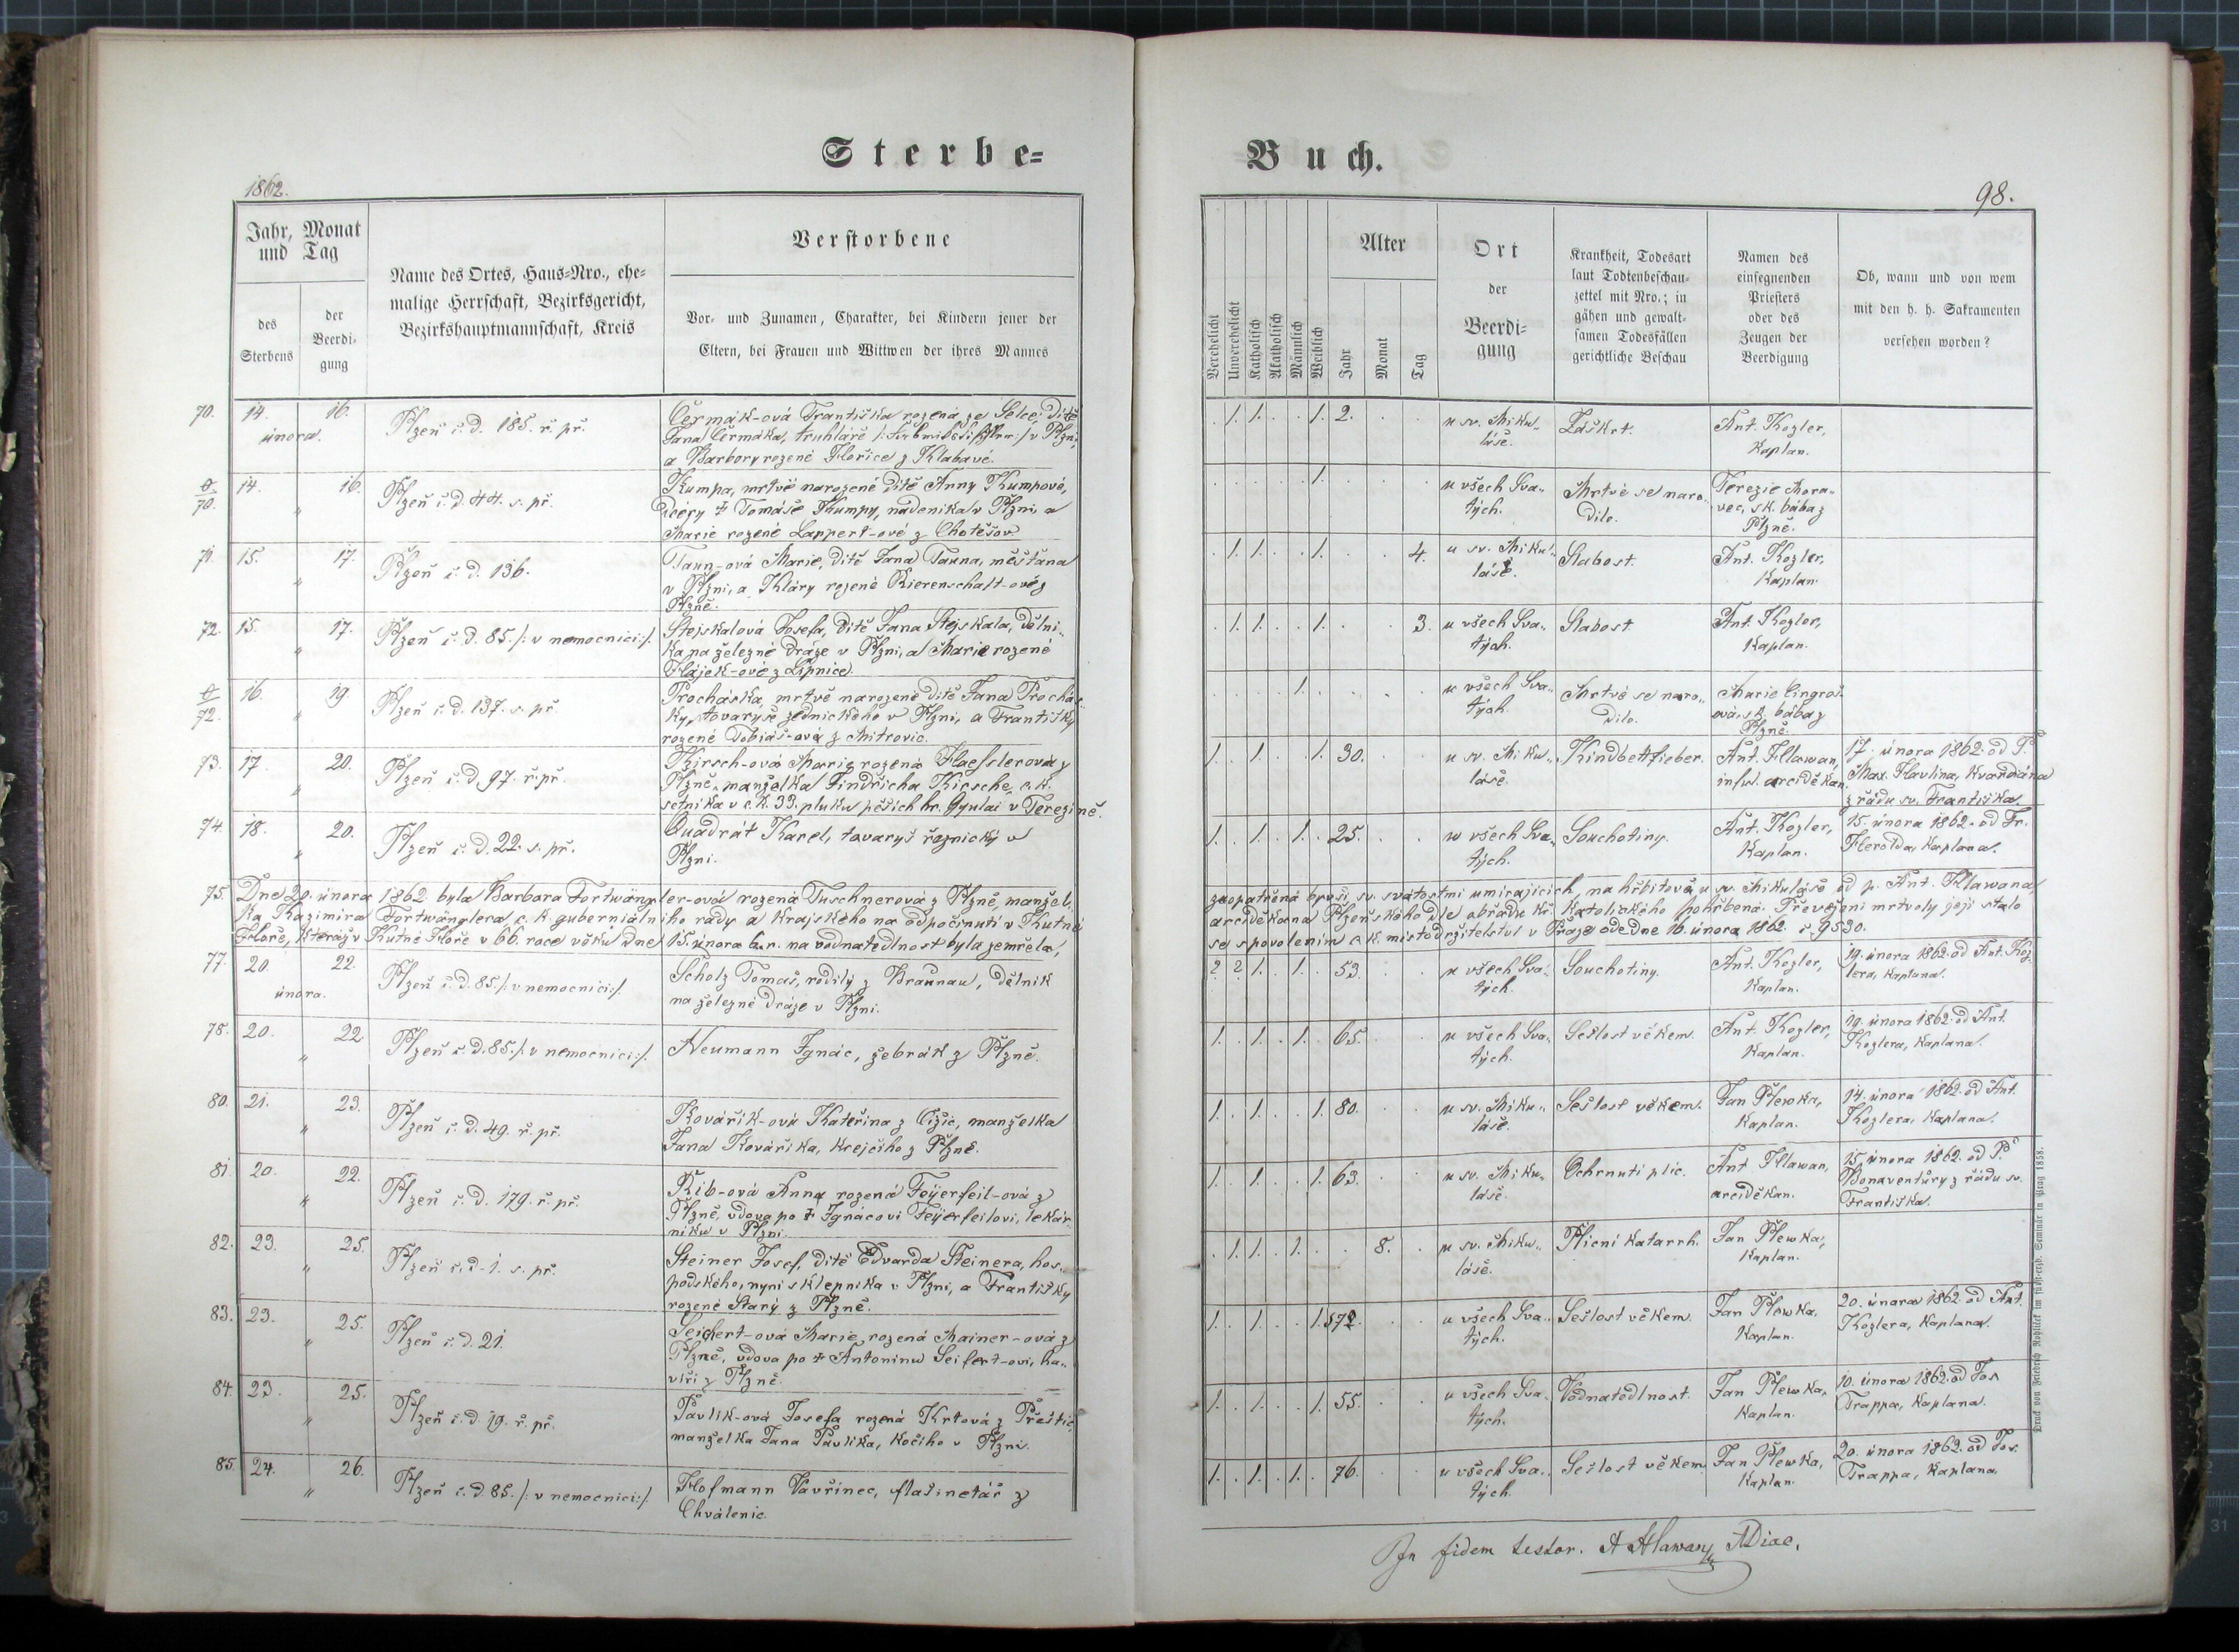 Sterbe-
1862.
Jahr, Monat
und Tag
des
Sterbens
der
Beerdi-
gung
Name des Ortes, Haus-Nro., ehe-
malige Herrschaft, Bezirksgericht,
Bezirkshauptmannschaft, Kreis
Verstorbene
Vor- und Zunamen, Charakter, bei Kindern jener der
Eltern, bei Frauen und Wittwen der ihres Mannes
70. 14. 16. Plzeň č. d. 185. ř. př. Čermák-ová Františka rozená ze Selce, dítě
února. Jana Čermáka, truhláře v Plzni,
a Barbory rozené Hořice z Klabavé.
0/70. 14. 16. Plzeň č. d. 44. s. př. Kumpa, mrtvě narozené dítě Anny Kumpové,
" dcery † Tomáše Kumpy, nádeníka v Plzni a
Marie rozené Lappert-ové z Chotěšov.
71. 15. 17. Plzeň č. d. 136. Taun-ová Marie, dítě Jana Tauna, měšťana
" v Plzni, a Kláry rozené Bierenschalt-ové z
Plzně.
72. 15. 17. Plzeň č. d. 85. /: v nemocnici :/. Stejskalová Josefa, dítě Jana Stejskala, dělní-
" ka na železné dráze v Plzni, a Marie rozené
Hájek-ové z Lipnice.
0/72. 16. 19 Plzeň č. d. 137. s. př. Procháska, mrtvě narozené dítě Jana Prochás-
" ky, tovaryše zednického v Plzni, a Františky
rozené Tobiáš-ová z Mitrovic.
73. 17. 20. Plzeň č. d. 97. ř. př. Kirsch-ová Marie rozená Haesslerová z
" Plzně, manželka Jindřicha Kirsche, c. k.
setníka v c. k. 33. pluku pěších hr. Gyulai v Terezíně.
74. 18. 20. Plzeň č. d. 22. s. př. Quadrát Karel, tovaryš řeznický v
" Plzni.
75. Dne 20. února 1862 byla Barbara Fortwängler-ová rozená Tuschnerová z Plzně, manžel-
ka Kazimíra Fortwänglera c. k. guberniálního rady a krajského na odpočinutí v Kutné
Hoře, kteráž v Kutné Hoře v 66. roce věku dne 15. února b. r. na vodnatedlnost byla zemřela,
77. 20. 22. Plzeň č. d. 85. /: v nemocnici :/. Scholz Tomáš, rodilý z Braunau, dělník
února. na železné dráze v Plzni.
78. 20. 22. Plzeň č. d. 85. /: v nemocnici :/. Neumann Ignác, žebrák z Plzně.
"
80. 21. 23. Plzeň č. d. 49. ř. př. Kovářík-ová Kateřina z Čižic, manželka
" Jana Kováříka, krejčího z Plzně.
81. 20. 22. Plzeň č. d. 179. ř. př. Rib-ová Anna rozená Feyerfeil-ová z
" Plzně, vdova po † Ignácovi Feyerfeilovi, lekár-
níku v Plzni.
82. 23. 25. Plzeň č. d. 1. s. př. Steiner Josef, dítě Edvarda Steinera, hos-
" podského, nyní sklepníka v Plzni, a Františky
rozené Starý z Plzně.
83. 23. 25. Plzeň č. d. 21. Seifert-ová Marie, rozená Mainer-ová z
" Plzně, vdova po † Antonínu Seifert-ovi, ha-
víři z Plzně.
84. 23. 25. Plzeň č. d. 19. ř. př. Pavlík-ová Josefa rozená Krtová z Přeštic,
" manželka Jana Pavlíka, kočího v Plzni.
85. 24. 26. Plzeň č. d. 85. /: v nemocnici :/. Hofmann Vavřinec, flašinetář z
" Chválenic.
Buch.
98.
Verehelicht
Unverehelicht
Katholisch
Akatholisch
Männlich
Weiblich
Alter
Jahr
Monat
Tag
Ort
der
Beerdi-
gung
Krankheit, Todesart
laut Todtenbeschau-
zettel mit Nro.; in
gähen und gewalt-
samen Todesfällen
gerichtliche Beschau
Namen des
einsegnenden
Priesters
oder des
Zeugen der
Beerdigung
Ob, wann und von wem
mit den h. h. Sakramenten
versehen worden?
. 1. 1. . . 1. 2. . . u sv. Miku- Záškrt. Ant. Kozler,
láše. Kaplan.
. . . . . 1. . . . u všech Sva- Mrtvé se naro- Terezie Mora-
tých. dilo. vec, sk. bába z
Plzně.
. 1. 1. . . 1. . . 4. u sv. Miku- Slabost. Ant. Kozler,
láše. Kaplan.
. 1. 1. . . 1. . . 3. u všech Sva- Slabost. Ant. Kozler,
tých. Kaplan.
. . . . 1. . . . . u všech Sva- Mrtvé se naro- Marie Cingroš-
tých. dilo. ová, sk. bába z
Plzně.
1. . 1. . . 1. 30. . . u sv. Miku- Kindbettfieber. Ant. Hlawan, 17. února 1862. od P.
láše. inful. arciděkan. Max. Havlína, kvardiána
z řádu sv. Františka.
1. . 1. . 1. . 25. . . u všech Sva- Souchotiny. Ant. Kozler, 15. února 1862. od Fr.
tých. Kaplan. Herolda, kaplana.
zaopatřená byvši sv. svátostmi umírajících, na hřbitově u sv. Mikuláše od p. Ant. Hlawana
arciděkana Plzeňského dle obřadu kř. katolického pohřbena. Převežení mrtvoly její stalo
se s povolením c. k. místodržitelství v Praze ode dne 16. února 1862. č. 9530.
2. 2. 1. . 1. . 53. . . u všech Sva- Souchotiny. Ant. Kozler, 19. února 1862. od Ant. Koz-
tých. Kaplan. lera, kaplana.
1. . 1. . 1. . 65. . . u všech Sva- Sešlost věkem. Ant. Kozler, 19. února 1862. od Ant.
tých. Kaplan. Kozlera, kaplana.
1. . 1. . . 1. 80. . . u sv. Miku- Sešlost věkem. Jan Plewka, 14. února 1862. od Ant.
láše. Kaplan. Kozlera, kaplana.
1. . 1. . . 1. 63. . . u sv. Miku- Ochrnutí plic. Ant. Hlawan, 15. února 1862. od P.
láše. arciděkan. Bonaventury z řádu sv.
Františka.
. 1. 1. . 1. . . 8. . u sv. Miku- Plicní katarrh. Jan Plewka,
láše. Kaplan.
1. . 1. . . 1. 72. . . u všech Sva- Sešlost věkem. Jan Plewka, 20. února 1862. od Ant.
tých. Kaplan. Kozlera, kaplana.
1. . 1. . . 1. 55. . . u všech Sva- Vodnatedlnost. Jan Plewka, 10. února 1862. od Jos.
tých. Kaplan. Trappa, kaplana.
1. . 1. . 1. . 76. . . u všech Sva- Sešlost věkem. Jan Plewka, 20. února 1862. od Jos.
tých. Kaplan. Trappa, kaplana.
In fidem testor. A Hlawan, ADiac.
Druck von Friedrich Rohliček im fürst-erzb. Seminär in Prag 1858.
31